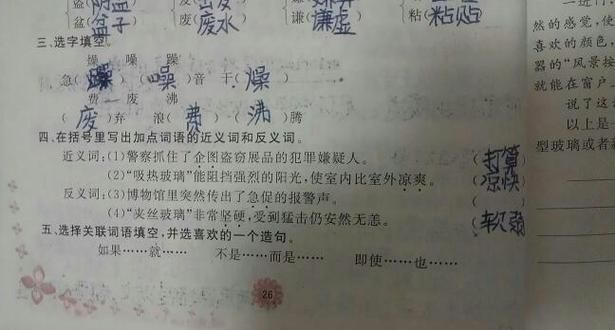 盗(阴盗
盆(盆子 废(废水 谦(谦虚 粘(粘贴
三、选字填空。
燥 噪 躁
急(躁) (噪)音 干(燥)
费 废 沸
(废)弃 浪(费) (沸)腾
四、在括号里写出加点词语的近义词和反义词。
近义词:(1)警察抓住了企图盗窃展品的犯罪嫌疑人。 (打算
(2)“吸热玻璃”能阻挡强烈的阳光,使室内比室外凉爽。 (凉快
反义词:(3)博物馆里突然传出了急促的报警声。 (
(4)“夹丝玻璃”非常坚硬,受到猛击仍安然无恙。 (软弱
五、选择关联词语填空,并选喜欢的一个造句。
如果……就…… 不是……而是…… 即使……也……
26
一进门,
然的感觉,使
喜欢的颜色,
器的“风景按
就能在窗户
说了这
以上是一
型玻璃或者